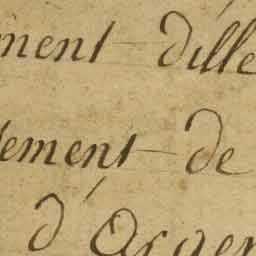 ment dille
lement de
d'Argen